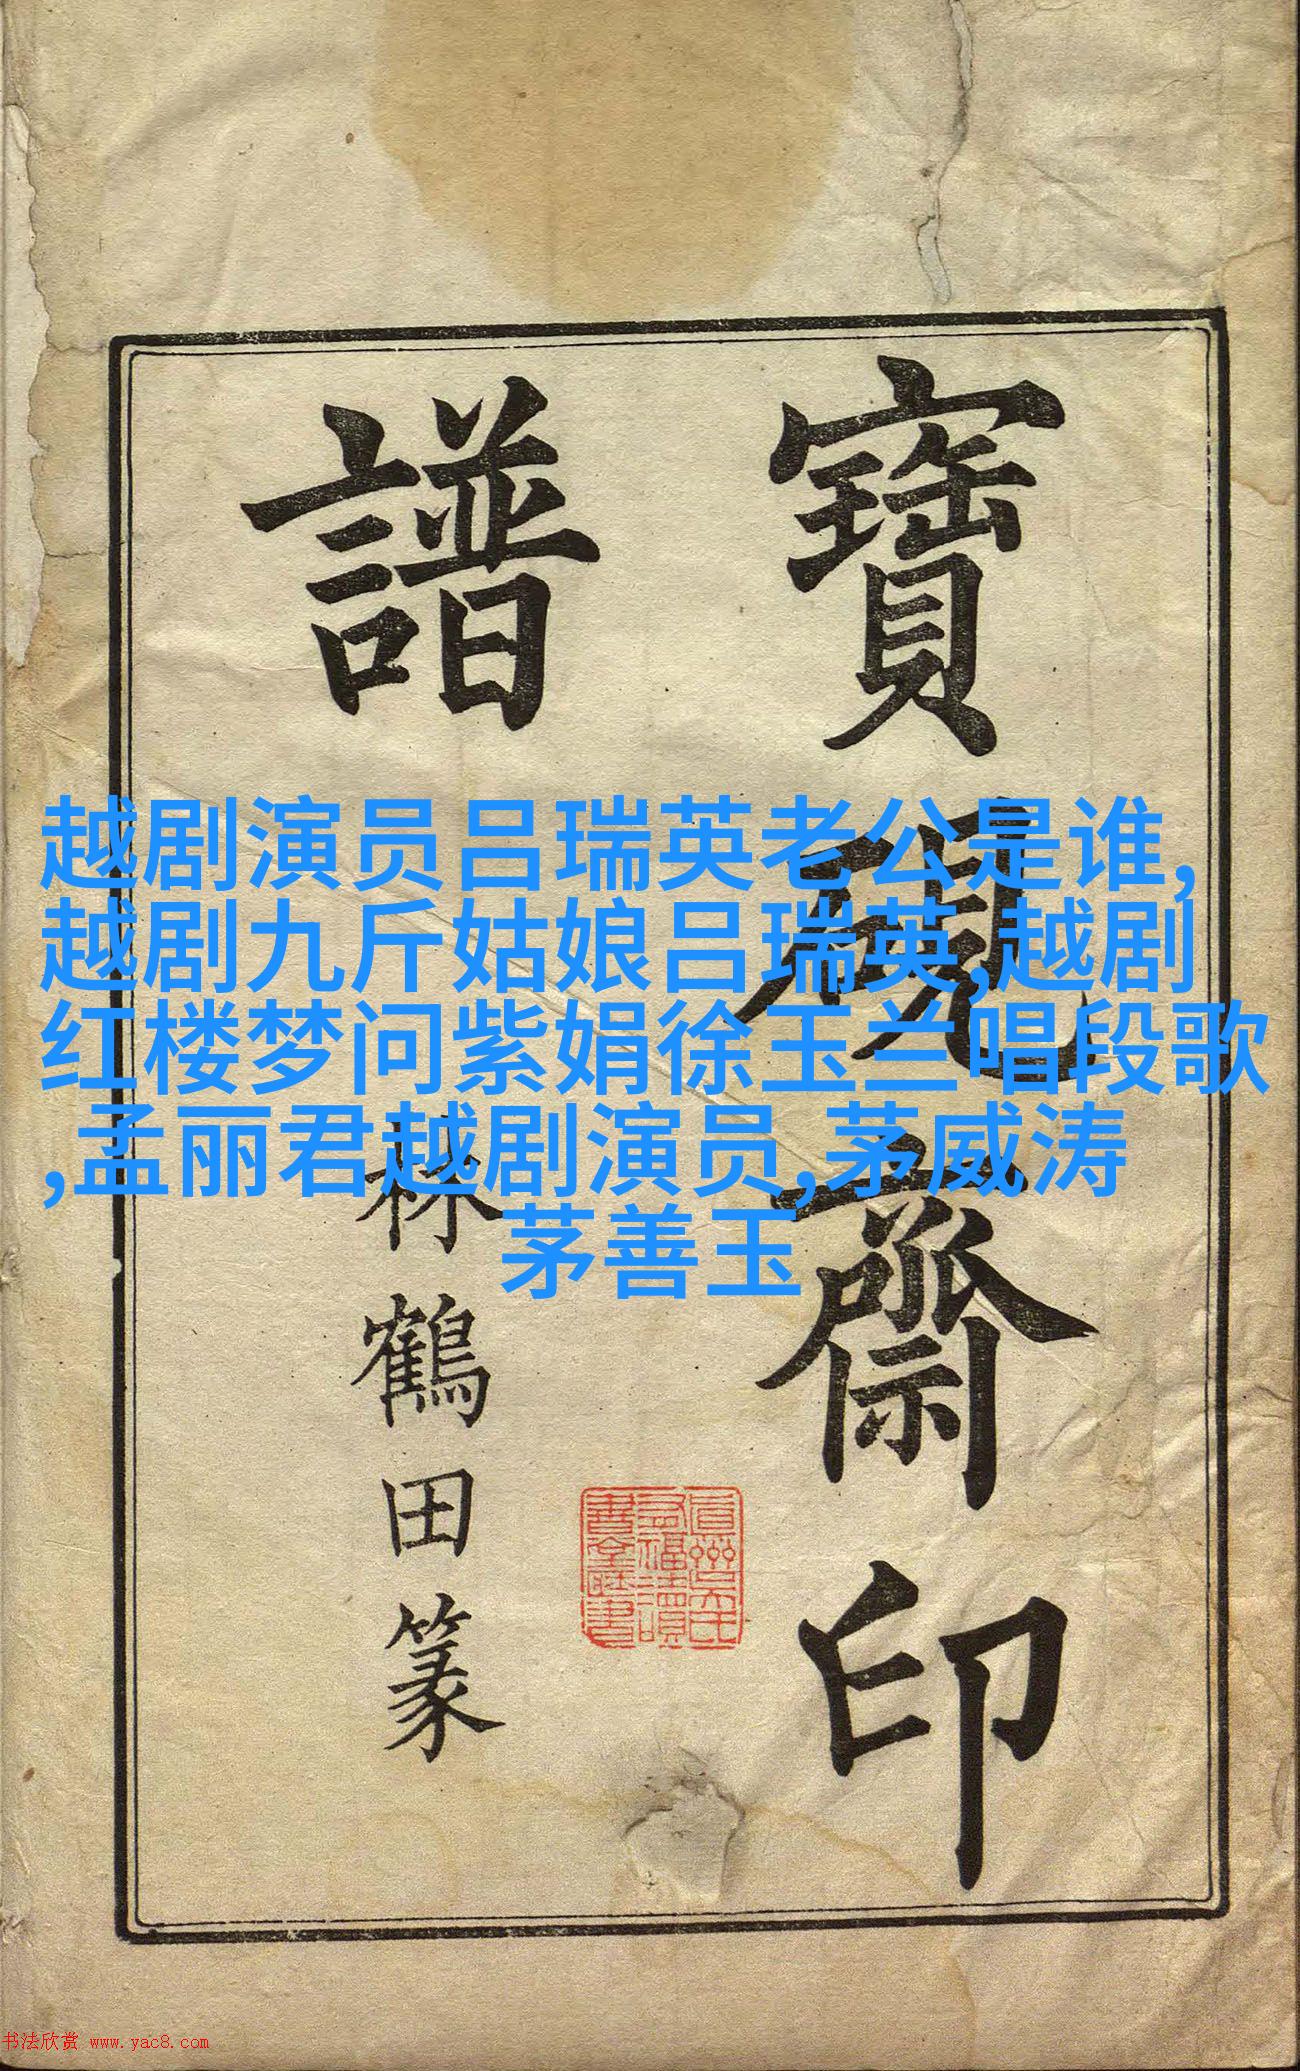 寶硯齋印
譜
林鶴田篆
越剧演员吕瑞英老公是谁,
越剧九斤姑娘吕瑞英,越剧
红楼梦问紫娟徐玉兰唱段歌
,孟丽君越剧演员,茅威涛
茅善玉
书法欣赏 www.yac8.com